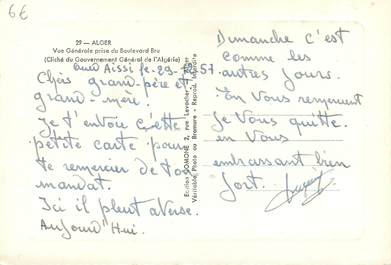 6€
29 — ALGER
Vue Générale prise du Boulevard Bru
(Cliché du Gouvernement Général de l'Algérie)
Aissi le 29-12-57
Chers grand-père et
grand-mère!
Je t'envoie cette
petite carte pour
te remercier de ton
mandat.
Ici il pleut averse.
Aujourd'Hui.
Edition SOMONE 7, rue Levacher Alger
Véritable Photo au Bromure - Reprod. Interdite
Dimanche c'est
comme les
autres jours.
En Vous remerciement
Je Vous quitte.
en Vous
embrassant bien
fort.